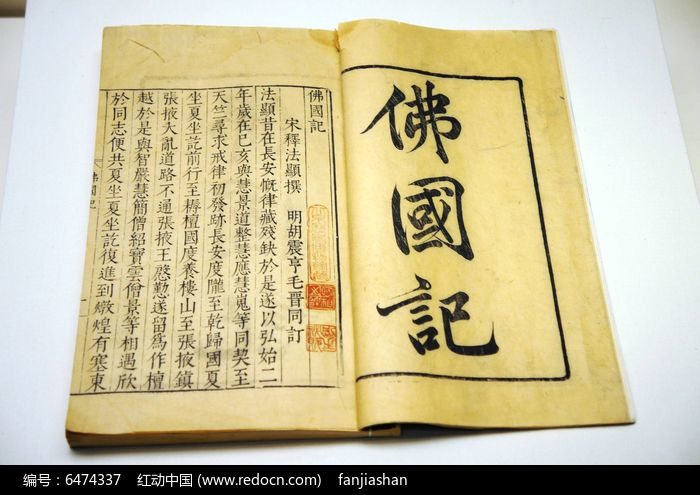 佛國記
佛國記
宋釋法顯撰 明胡震亨毛晉同訂
法顯昔在長安慨律藏殘缺於是遂以弘始二
年歲在己亥與慧景道整慧應慧嵬等同契至
天竺尋求戒律初發跡長安度隴至乾歸國夏
坐夏坐訖前行至耨檀國度養樓山至張掖鎮
張掖大亂道路不通張掖王慇懃遂留為作檀
越於是與智嚴慧簡僧紹寶雲僧景等相遇欣
於同志便共夏坐夏坐訖復進到燉煌有塞東
佛國記
编号：6474337 红动中国 (www.redocn.com) fanjiashan